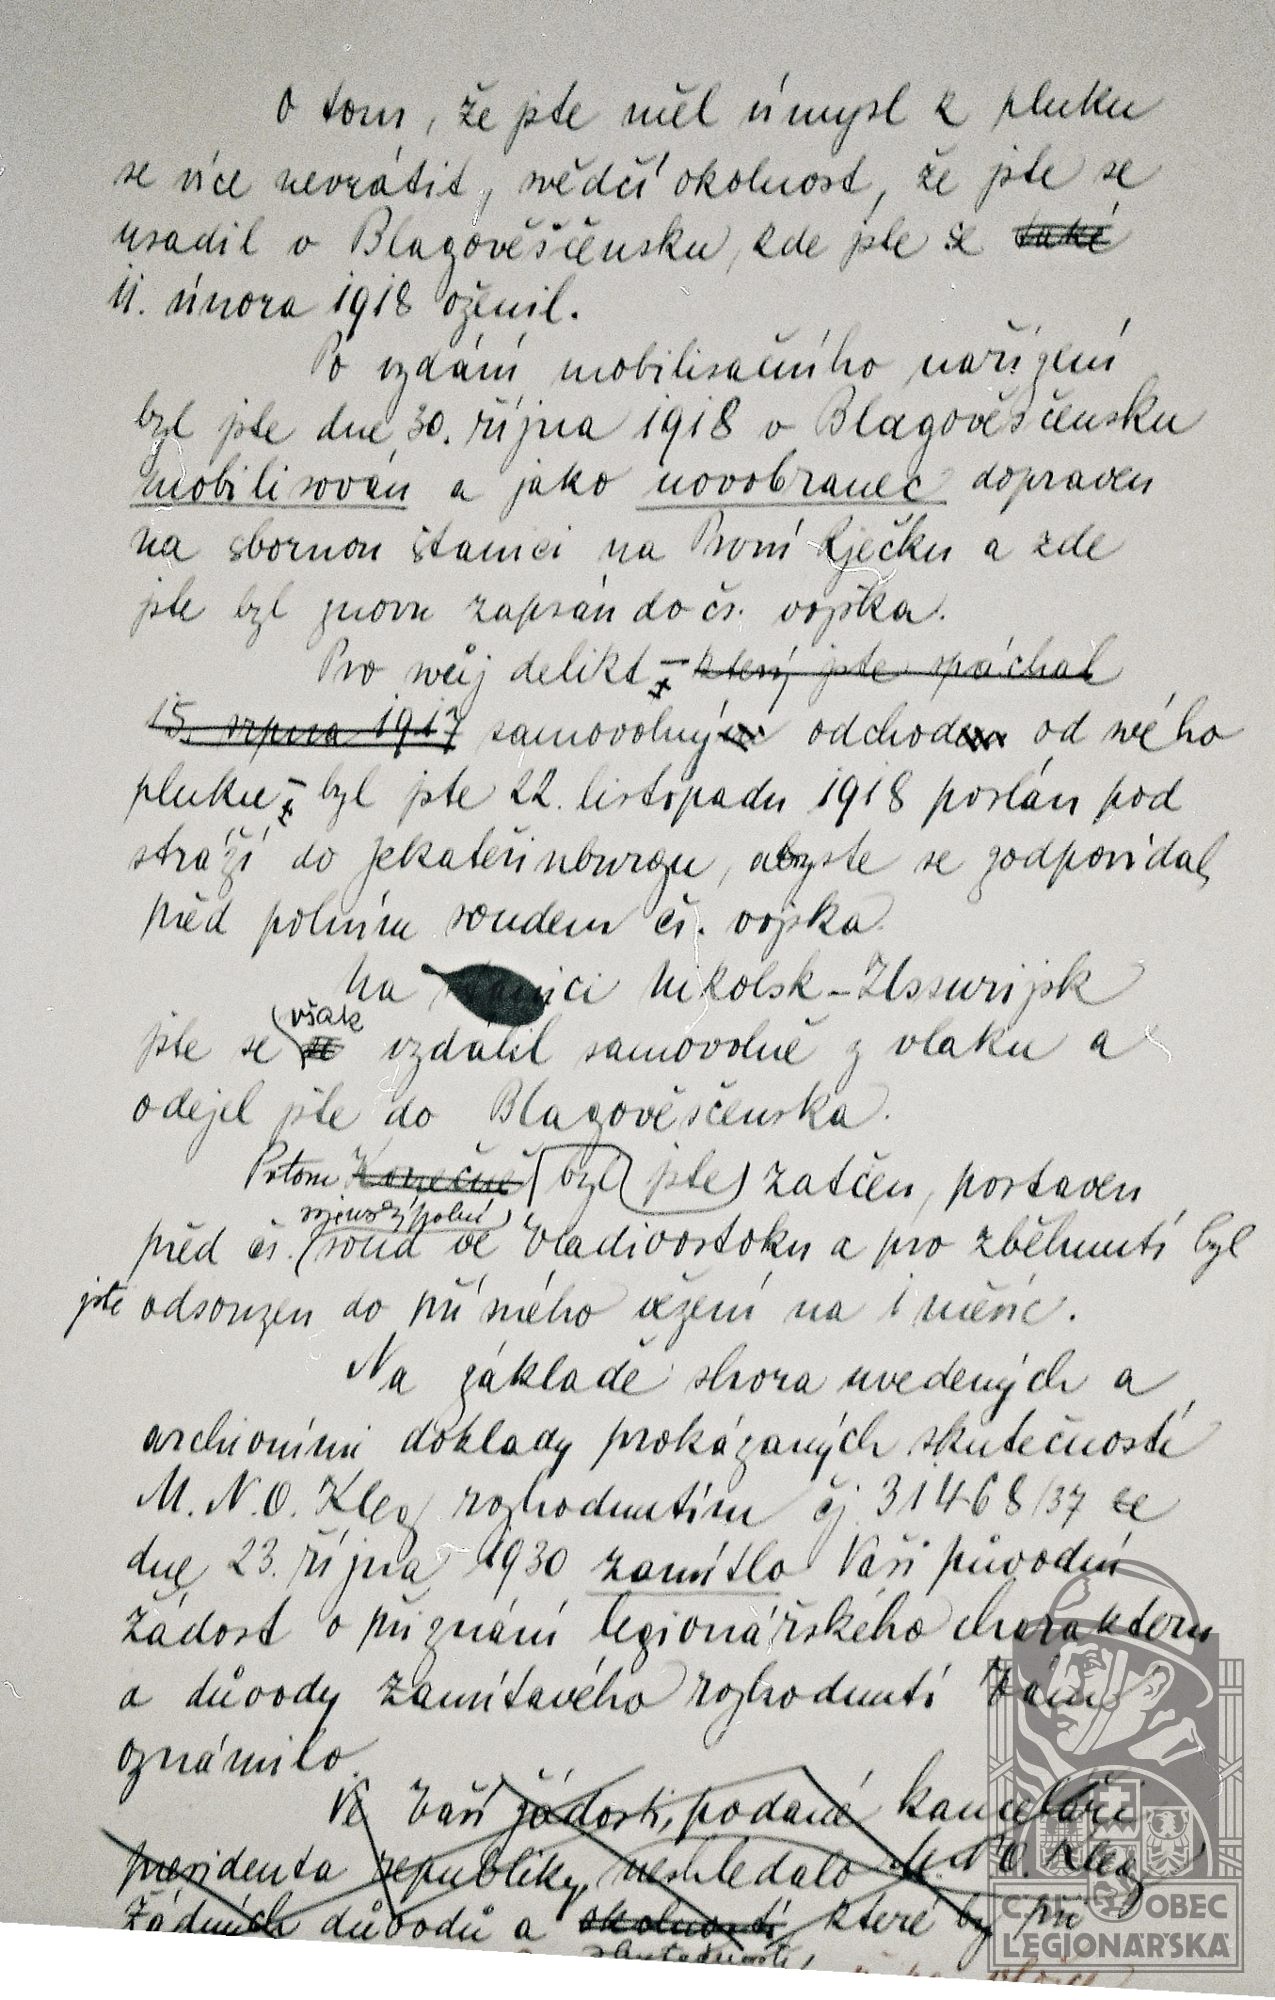 O tom, že jste měl úmysl k pluku
se více nevrátit, svědčí okolnost, že jste se
usadil v Blagověščensku, kde jste se také
11. února 1918 oženil.
Po vydání mobilisačního nařízení
byl jste dne 30. října 1918 v Blagověščensku
mobilisován a jako novobranec dopraven
na sbornou stanici na První Rječku a zde
jste byl znovu zapsán do čs. vojska.
Pro svůj delikt – který jste spáchal
15. srpna 1917 samovolný odchod od svého
pluku – byl jste 22. listopadu 1918 poslán pod
stráží do Jekatěrinburgu, abyste se zodpovídal
před polním soudem čs. vojska.
Na stanici Nikolsk-Ussurijsk
však
jste se se vzdálil samovolně z vlaku a
odejel jste do Blagověščenska.
Potom Konečně byl jste zatčen, postaven
vojenský polní
před čs. soud ve Vladivostoku a pro zběhnutí byl
jste odsouzen do přísného vězení na 1 měsíc.
Na základě shora uvedených a
archivními doklady prokázaných skutečností
M.N.O. Kleg rozhodnutím čj. 31468/37 ze
dne 23. října 1930 zamítlo Vaši původní
žádost o přiznání legionářského charakteru
a důvody zamítavého rozhodnutí Vám
oznámilo.
Ve Vaší žádosti, podané kanceláři
presidenta republiky, neshledalo M.N.O. Kleg
žádných důvodů a okolností které by při
skutečností
OBEC
LEGIONÁŘSKÁ